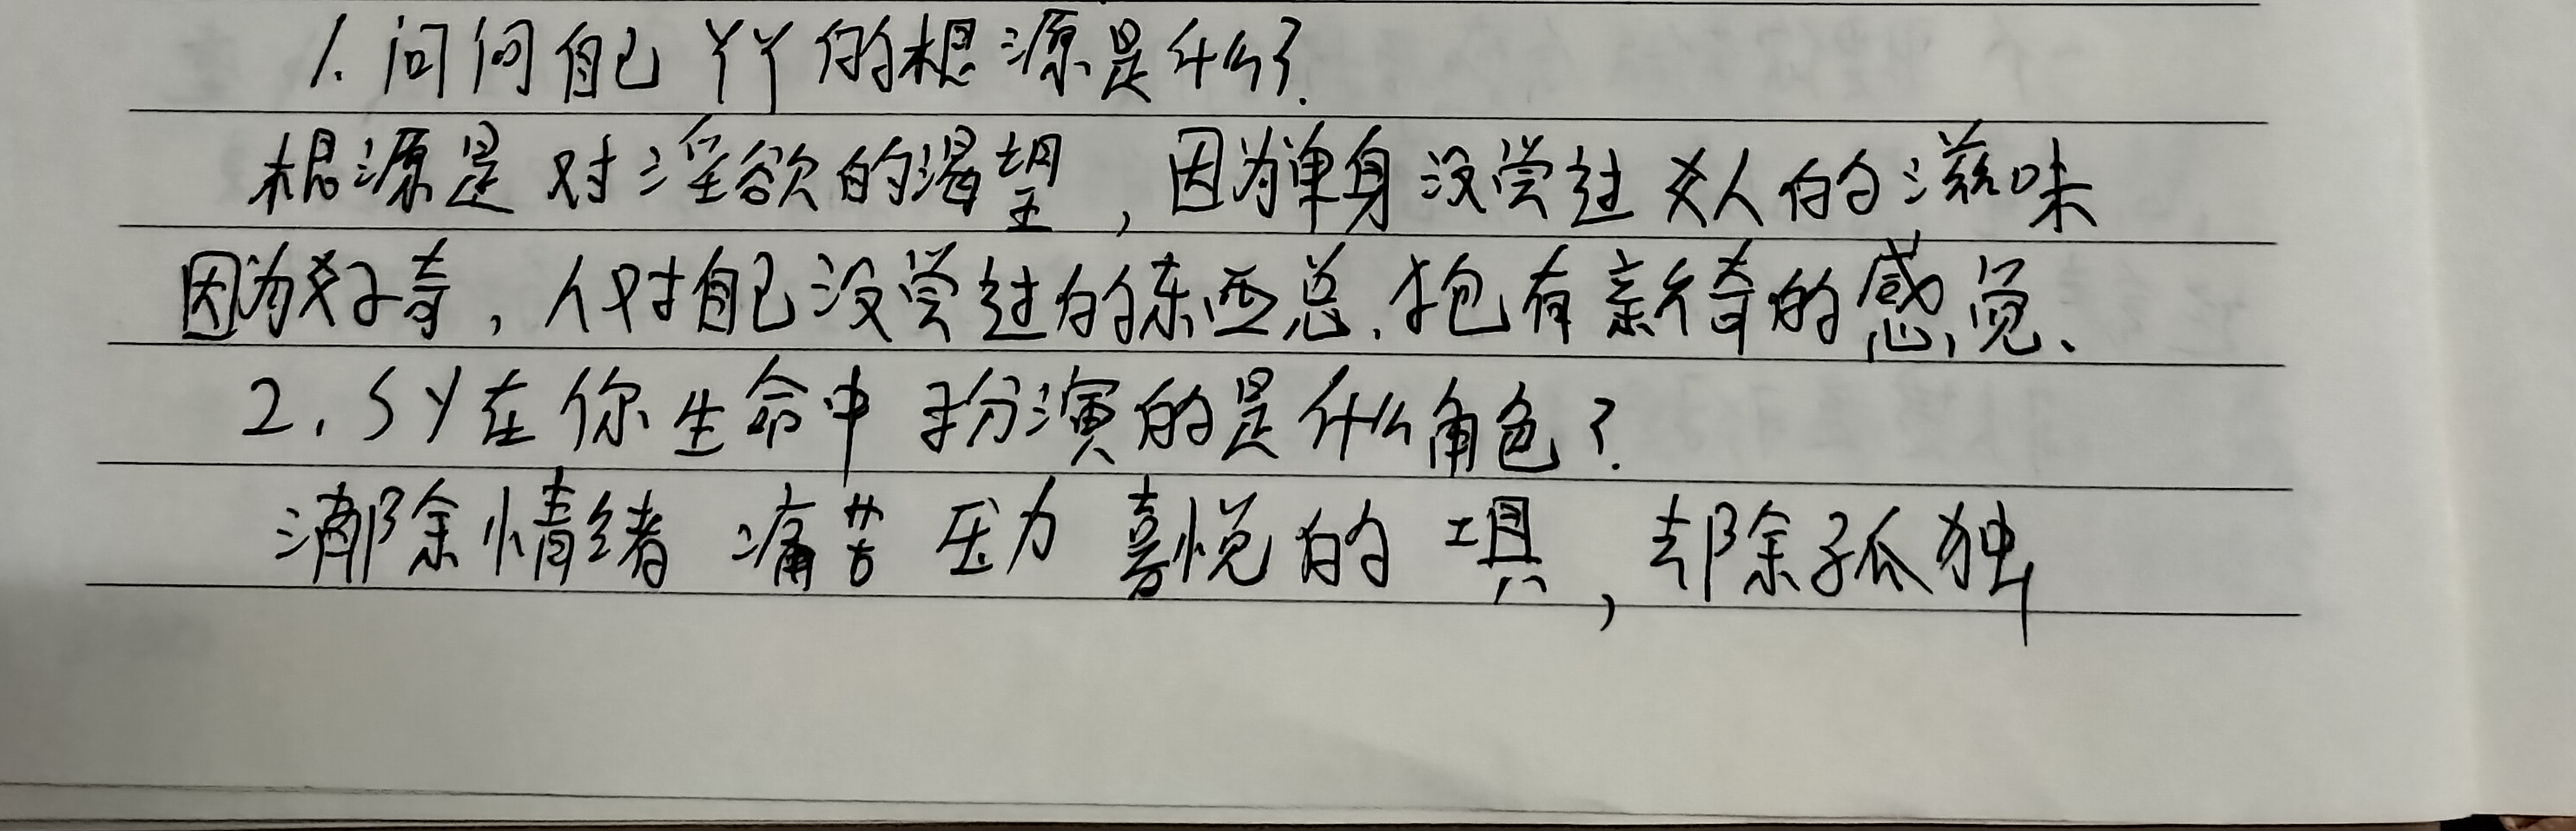 1.问问自己YY的根源是什么?
根源是对淫欲的渴望,因为单身没尝过女人的滋味
因为好奇,人对自己没尝过的东西总.抱有新奇的感觉、
2.SY在你生命中扮演的是什么角色?
消除情绪 痛苦 压力 喜悦的工具,去除孤独